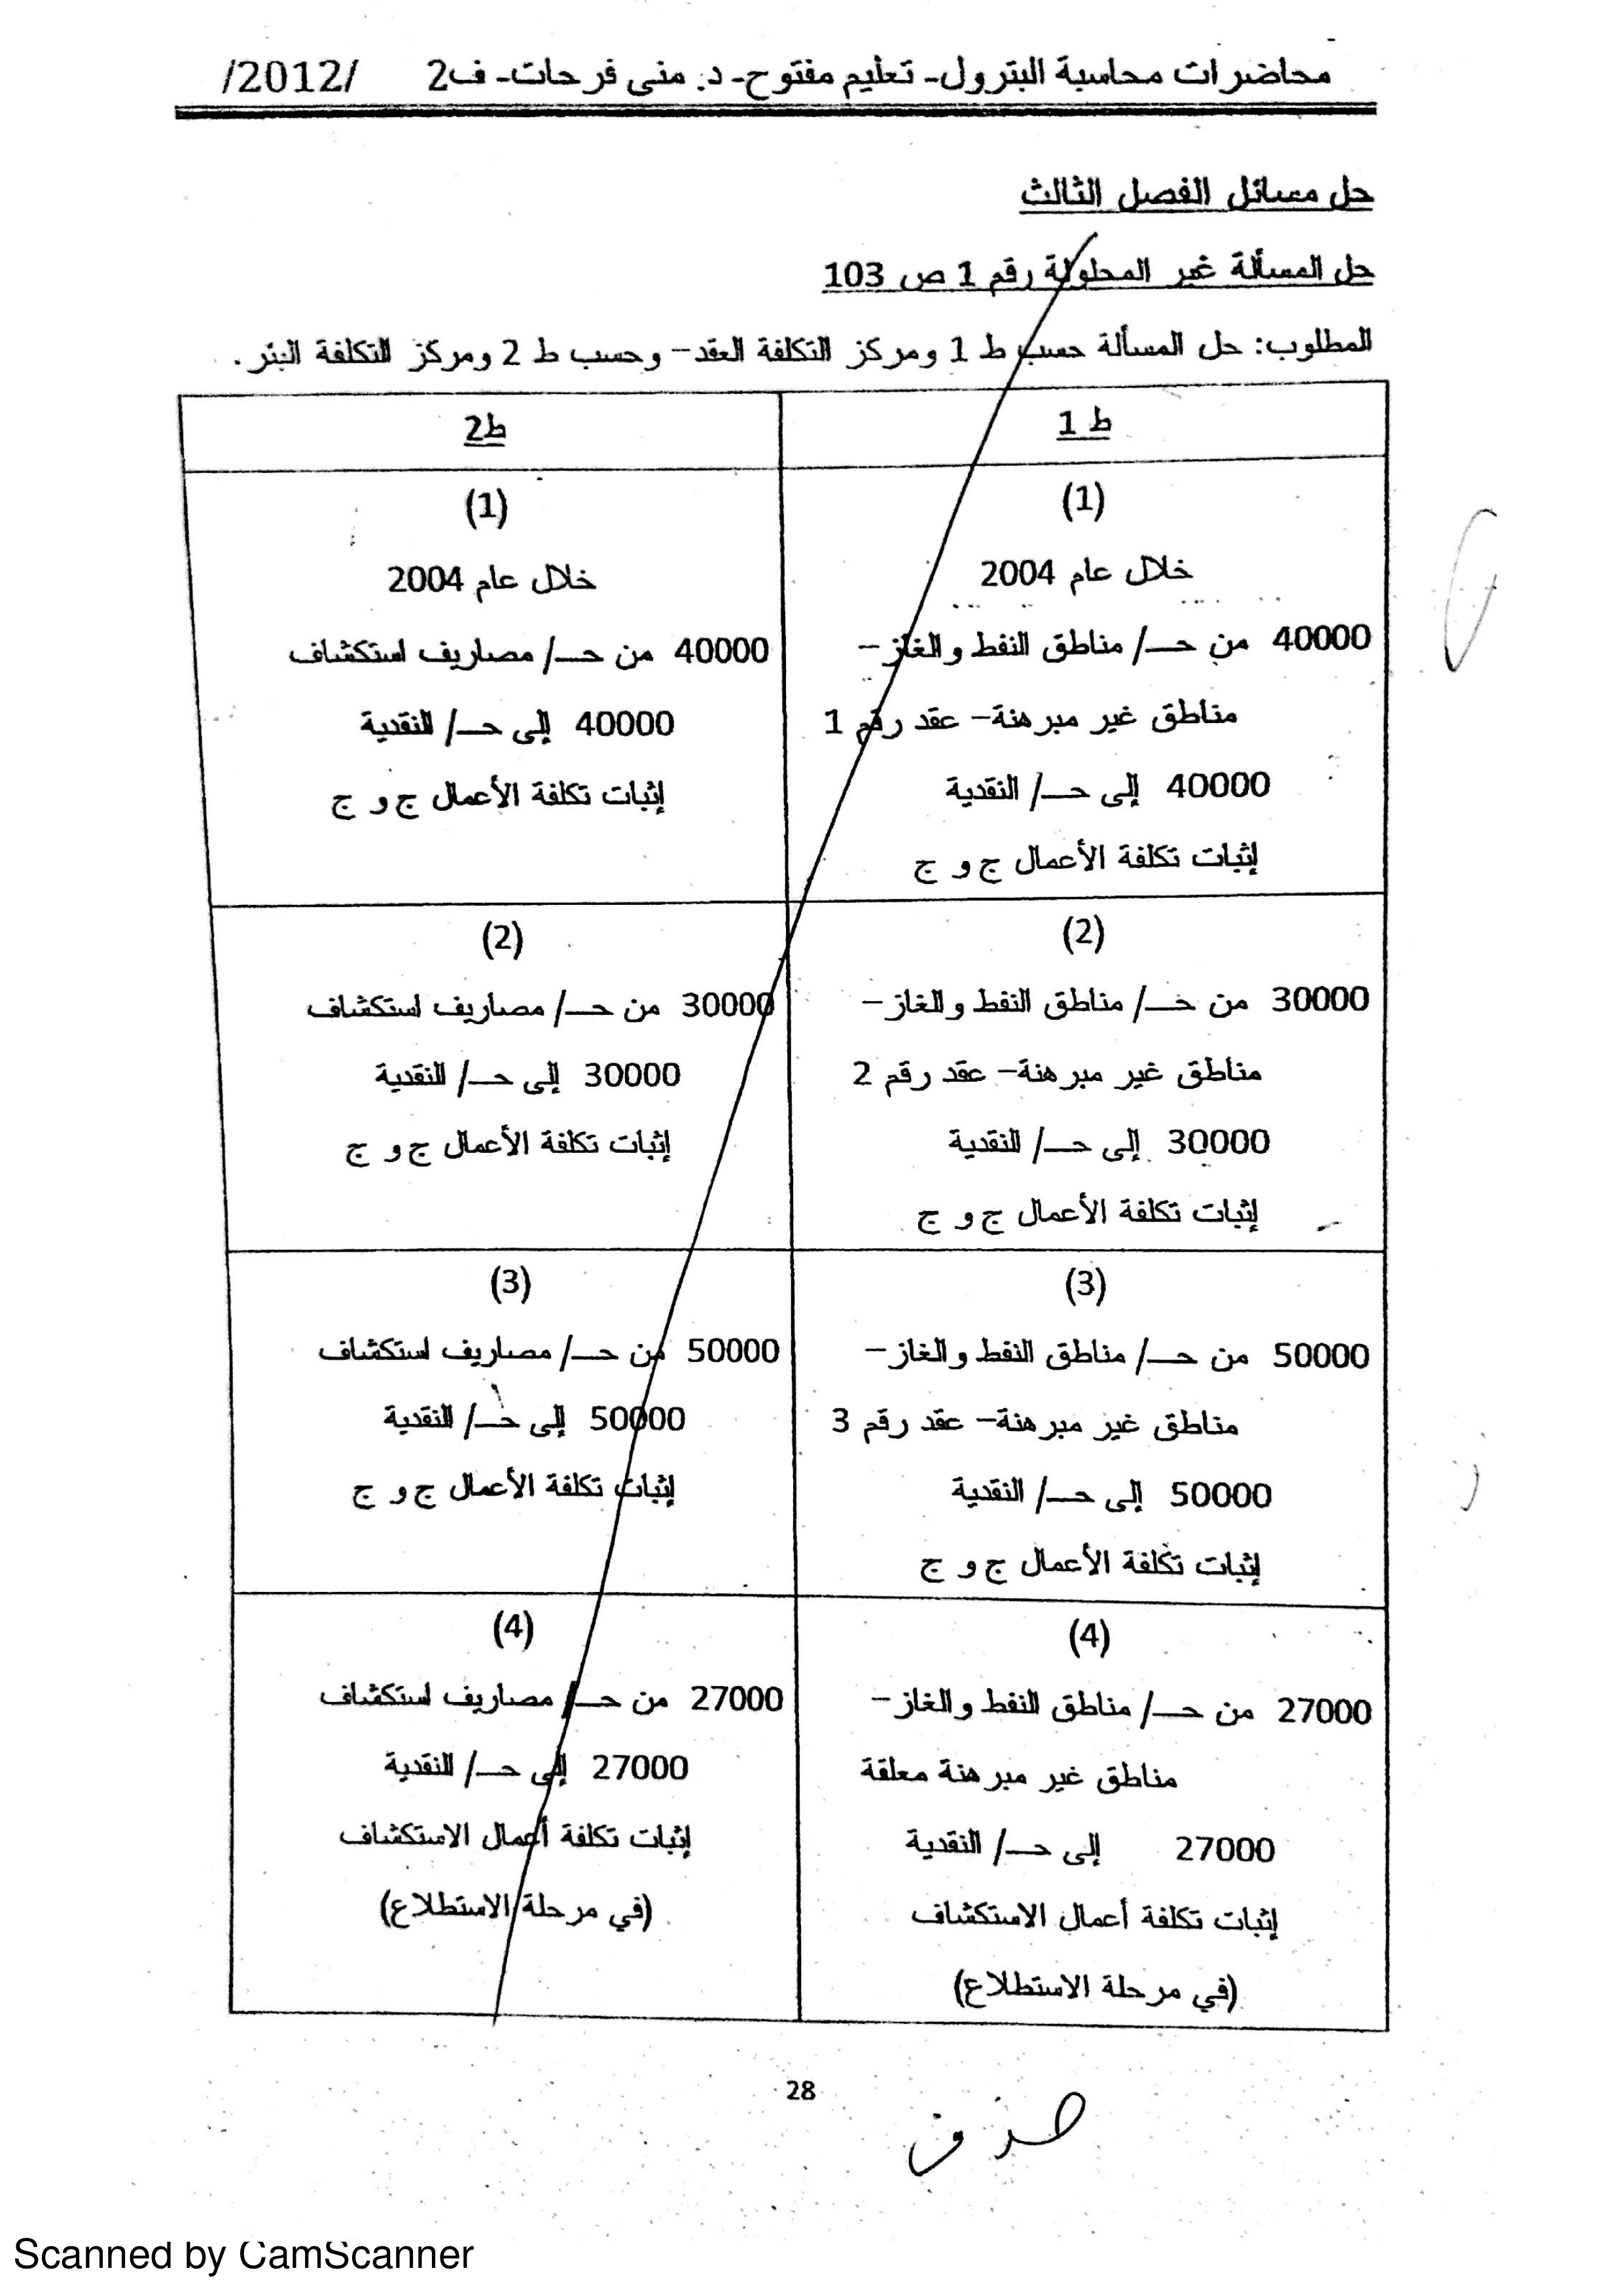 محاضرات محاسبة البترول- تعليم مفتوح- د. منى فرحات- ف2 /2012/
حل مسائل الفصل الثالث
حل المسألة غير المحلولة رقم 1 ص 103
المطلوب: حل المسألة حسب ط 1 ومركز التكلفة العقد- وحسب ط 2 ومركز التكلفة البئر.
ط 1
ط2
(1)
خلال عام 2004
40000 من حـ/ مناطق النفط والغاز-
مناطق غير مبرهنة- عقد رقم 1
40000 إلى حـ/ النقدية
إثبات تكلفة الأعمال ج و ج
(1)
خلال عام 2004
40000 من حـ/ مصاريف استكشاف
40000 إلى حـ/ النقدية
إثبات تكلفة الأعمال ج و ج
(2)
30000 من حـ/ مناطق النفط والغاز-
مناطق غير مبرهنة- عقد رقم 2
30000 إلى حـ/ النقدية
إثبات تكلفة الأعمال ج و ج
(2)
30000 من حـ/ مصاريف استكشاف
30000 إلى حـ/ النقدية
إثبات تكلفة الأعمال ج و ج
(3)
50000 من حـ/ مناطق النفط والغاز-
مناطق غير مبرهنة- عقد رقم 3
50000 إلى حـ/ النقدية
إثبات تكلفة الأعمال ج و ج
(3)
50000 من حـ/ مصاريف استكشاف
50000 إلى حـ/ النقدية
إثبات تكلفة الأعمال ج و ج
(4)
27000 من حـ/ مناطق النفط والغاز-
مناطق غير مبرهنة معلقة
27000 إلى حـ/ النقدية
إثبات تكلفة أعمال الاستكشاف
(في مرحلة الاستطلاع)
(4)
27000 من حـ/ مصاريف استكشاف
27000 إلى حـ/ النقدية
إثبات تكلفة أعمال الاستكشاف
(في مرحلة الاستطلاع)
28
حذف
Scanned by CamScanner